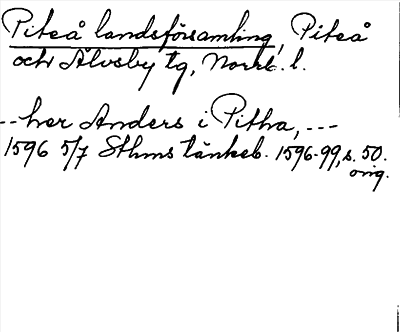 Piteå landsförsamling, Piteå
och Älvsby tg, Norrb. l.
-- her Anders i Pitha, ---
1596 5/7 Sthms tänkeb. 1596-99, s. 50.
orig.